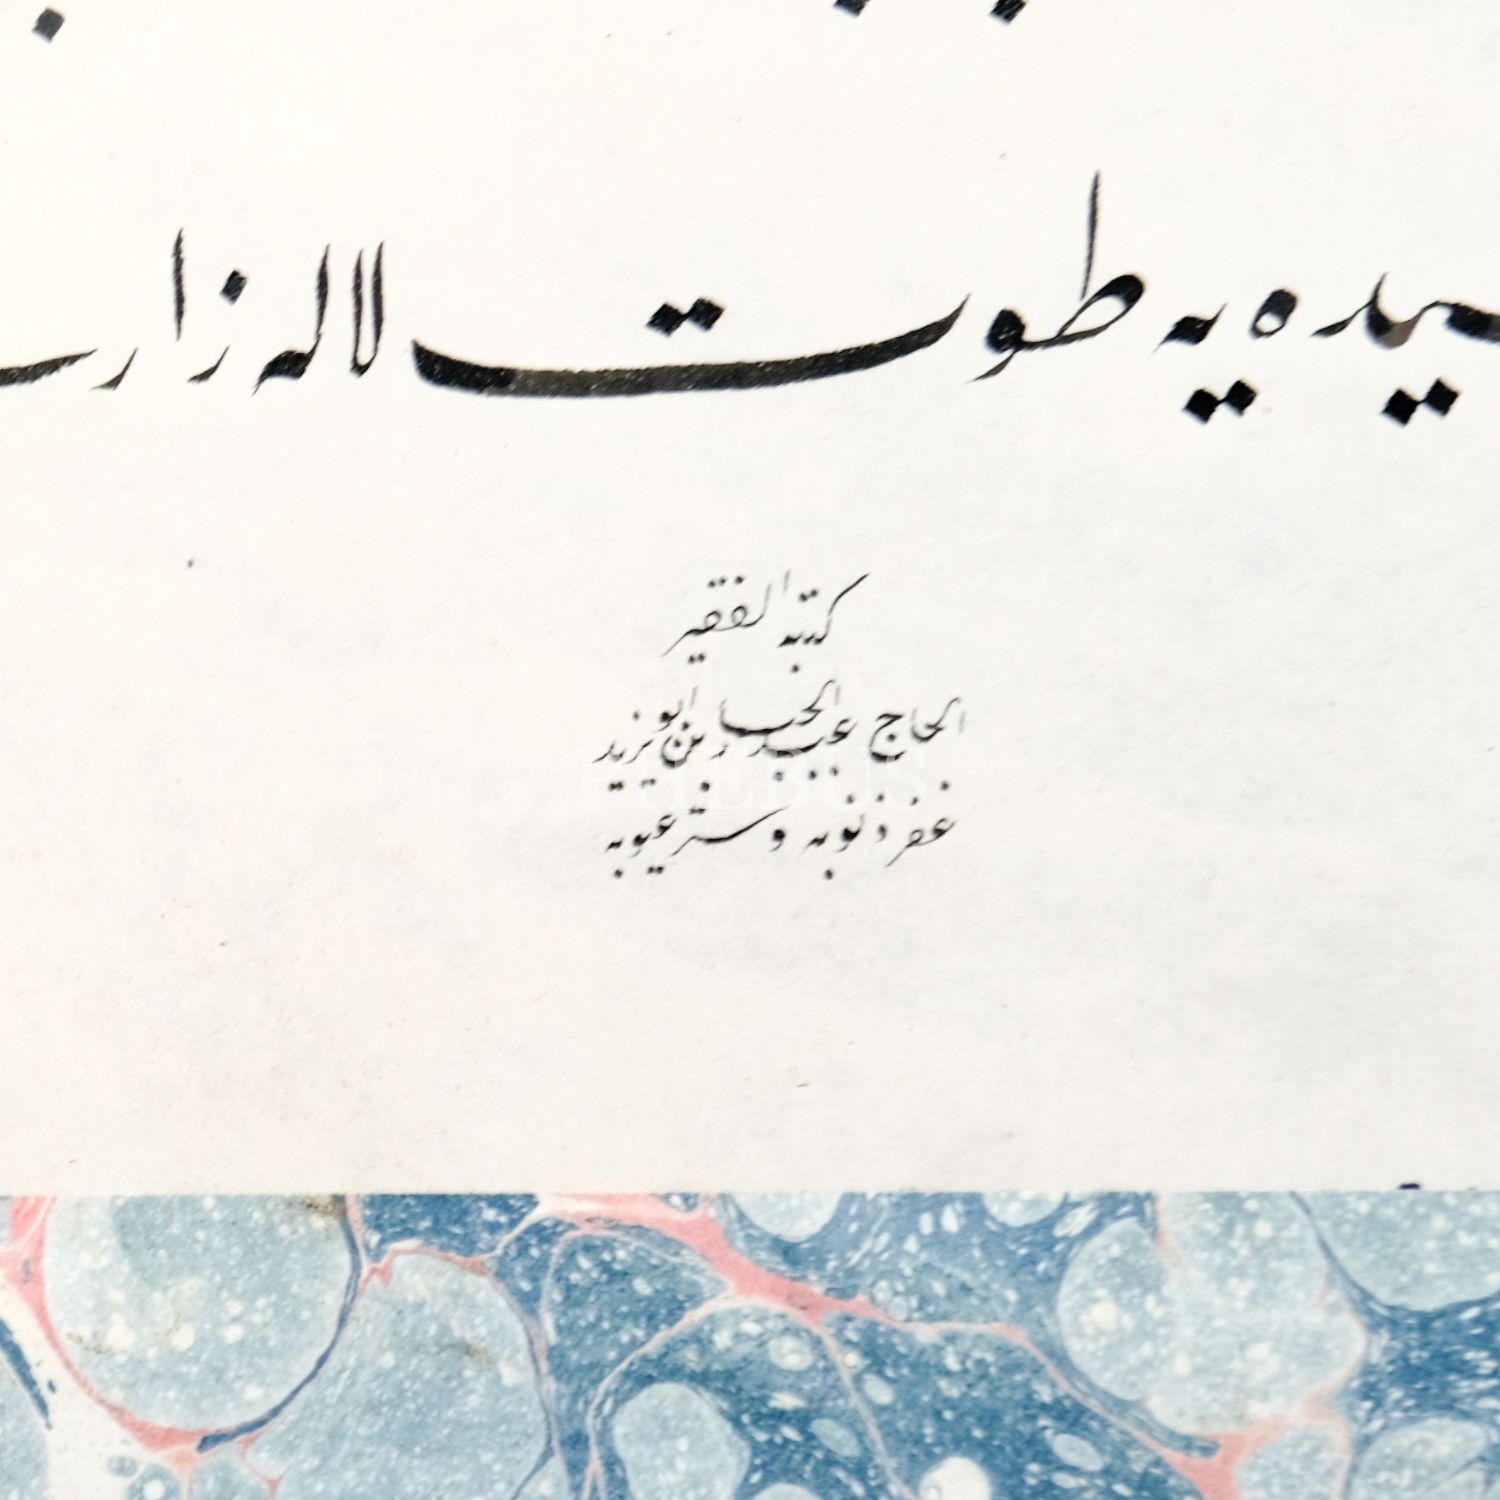 يده يه طوت لاله زار
كتبه الفقير
الحاج عبد الجبار بن ابو زيد
غفر ذنوبه وستر عيوبه
PHEBUS